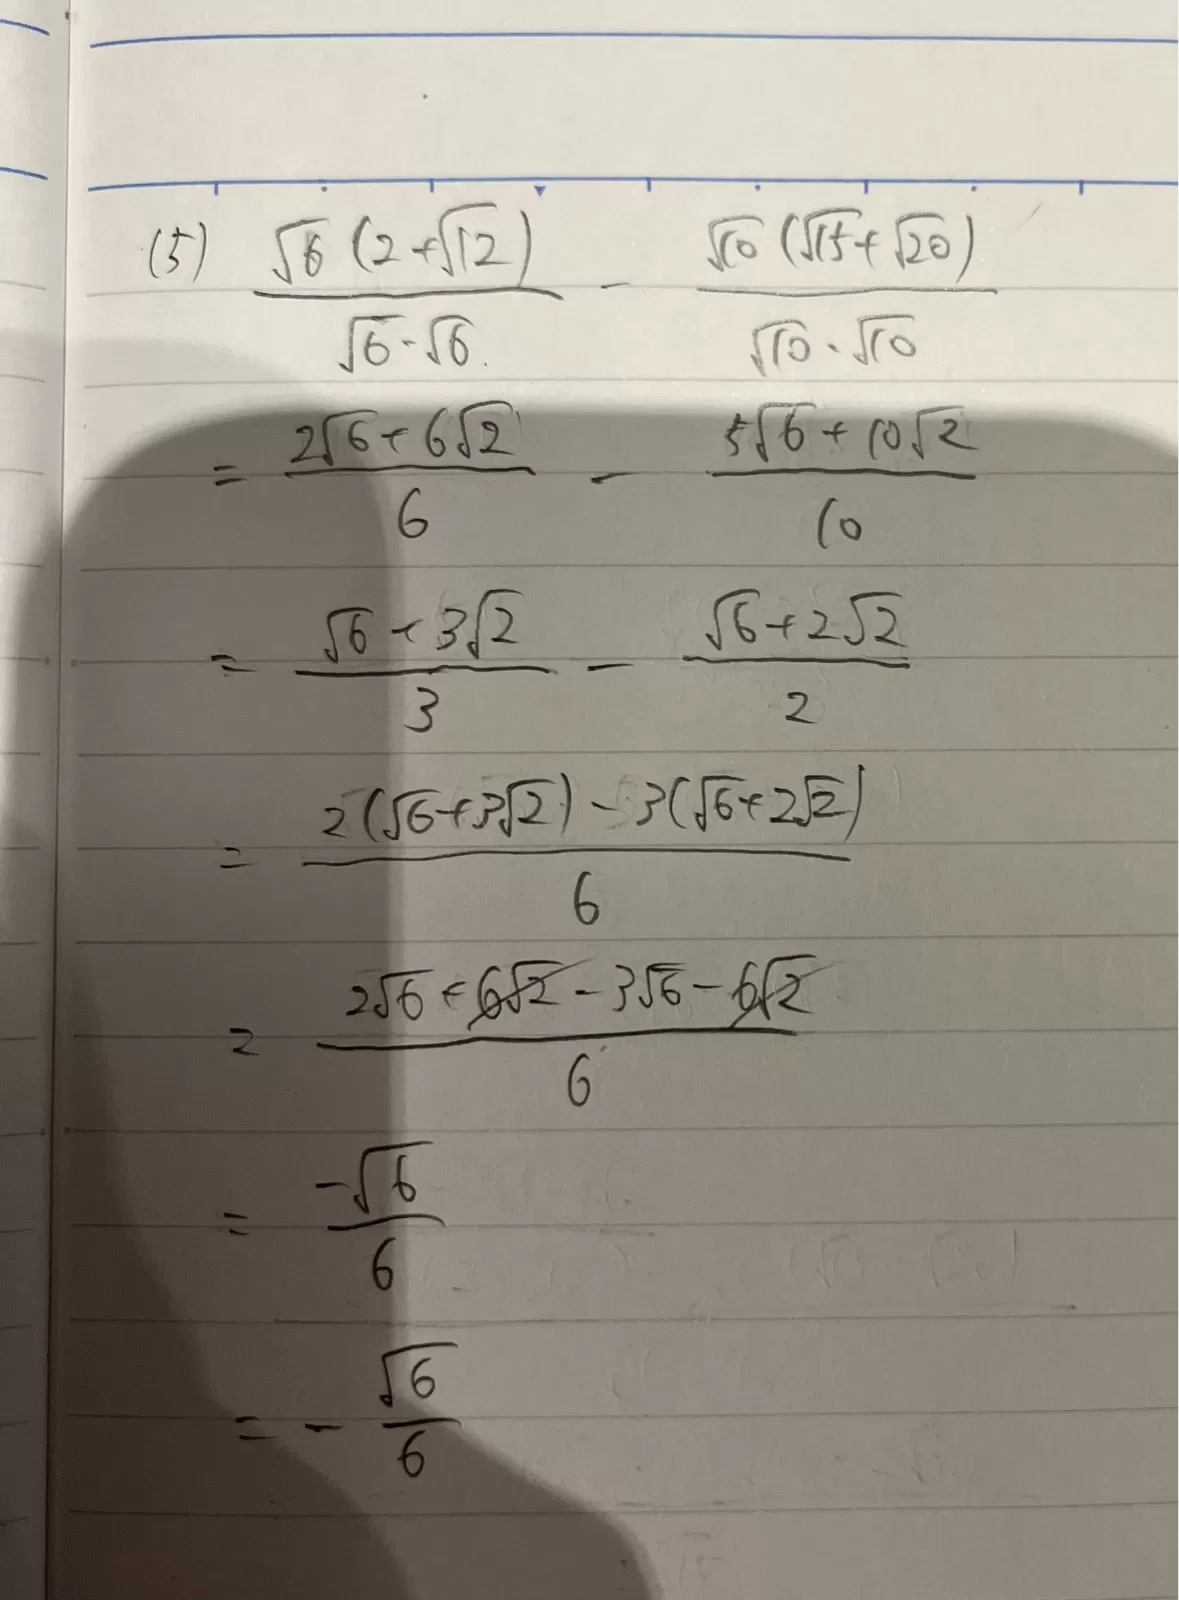 (5) √6(2+√12)/√6·√6 - √10(√15+√20)/√10·√10
= 2√6+6√2/6 - 5√6+10√2/10
= √6+3√2/3 - √6+2√2/2
= 2(√6+3√2)-3(√6+2√2)/6
= 2√6+6√2-3√6-6√2/6
= -√6/6
= -√6/6